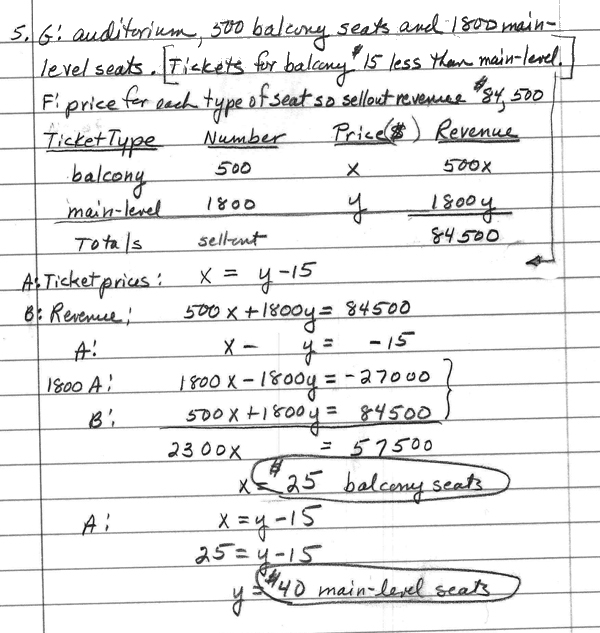 5. G: auditorium, 500 balcony seats and 1800 main-
level seats. [Tickets for balcony $15 less than main-level.]
F: price for each type of seat so sellout revenue $84,500
Ticket Type Number Price($) Revenue
balcony 500 x 500x
main-level 1800 y 1800y
Totals sellout 84500
A: Ticket prices: x = y-15
B: Revenue: 500x+1800y = 84500
A: x - y = -15
1800 A: 1800x-1800y = -27000
B: 500x+1800y = 84500
2300x = 57500
x = $25 balcony seats
A: x = y-15
25 = y-15
y = $40 main-level seats